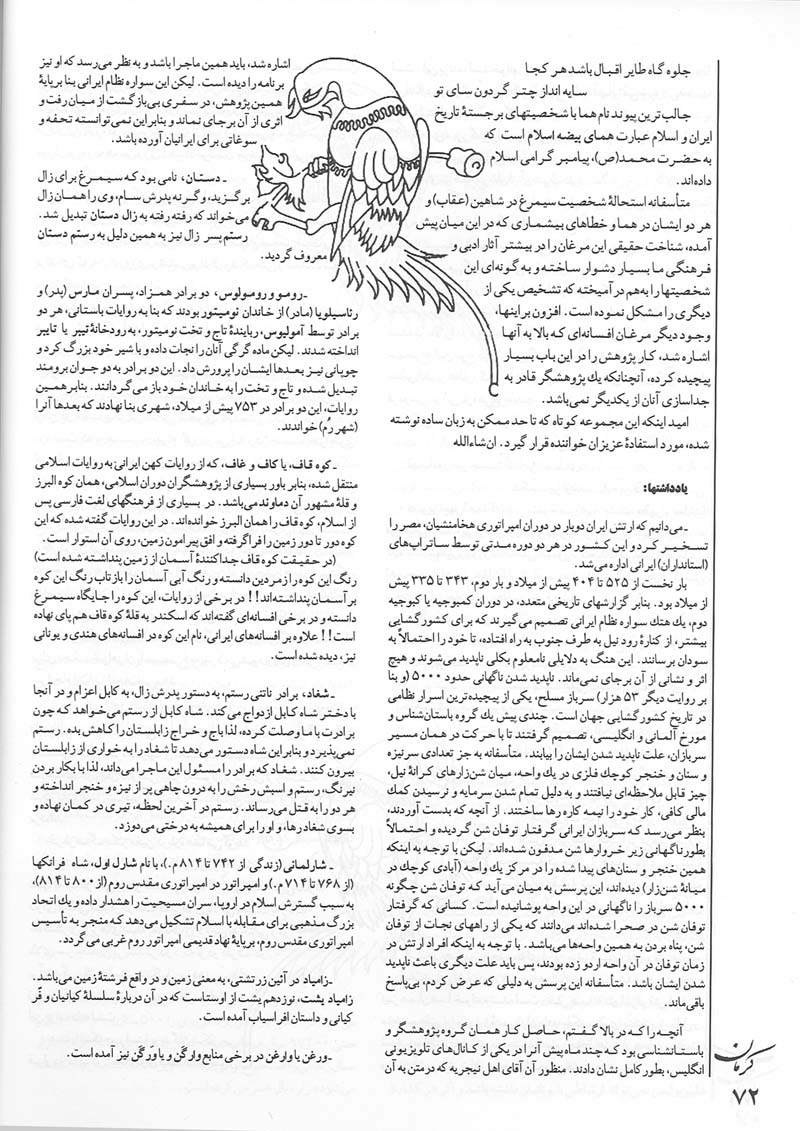 جلوه گاه طایر اقبال باشد هر کجا
سایه اندازد چتر گردون سای تو
جالب ترین پیوند نام هما با شخصیتهای برجستهٔ تاریخ
ایران و اسلام عبارت همای بیضه اسلام است که
به حضرت محمد(ص)، پیامبر گرامی اسلام
داده‌اند.
متأسفانه استحالهٔ شخصیت سیمرغ در شاهین (عقاب) و
هر دو ایشان در هما و خطاهای بیشماری که در این میان پیش
آمده، شناخت حقیقی این مرغان را در بیشتر آثار ادبی و
فرهنگی ما بسیار دشوار ساخته و به گونه‌ای این
شخصیتها را به‌هم درآمیخته که تشخیص یکی از
دیگری را مشکل نموده است. افزون بر اینها،
وجود دیگر مرغان افسانه‌ای که بالا به آنها
اشاره شد، کار پژوهش را در این باب بسیار
پیچیده کرده، آنچنانکه یك پژوهشگر قادر به
جداسازی آنان از یکدیگر نمی‌باشد.
امید اینکه این مجموعه کوتاه که تا حد ممکن به زبان ساده نوشته
شده، مورد استفادهٔ عزیزان خواننده قرار گیرد. ان‌شاءالله
یادداشتها:
ـ می‌دانیم که ارتش ایران دوبار در دوران امپراتوری هخامنشیان، مصر را
تسخیر کرد و این کشور در هر دو دوره مدتی توسط ساتراپ‌های
(استانداران) ایرانی اداره می‌شد.
بار نخست از ۵۲۵ تا ۴۰۴ پیش از میلاد و بار دوم، ۳۴۳ تا ۳۳۵ پیش
از میلاد بود. بنابر گزارشهای تاریخی متعدد، در دوران کمبوجیه یا کبوجیه
دوم، یك هنگ سواره نظام ایرانی تصمیم می‌گیرند که برای کشورگشایی
بیشتر، از کنارهٔ رود نیل به طرف جنوب به راه افتاده، تا خود را احتمالاً به
سودان برسانند. این هنگ به دلایلی نامعلوم بکلی ناپدید می‌شوند و هیچ
اثر و نشانی از آن برجای نمی‌ماند. ناپدید شدن ناگهانی حدود ۵۰۰۰ (و بنا
بر روایت دیگر ۵۳ هزار) سرباز مسلح، یکی از پیچیده‌ترین اسرار نظامی
در تاریخ کشورگشایی جهان است. چندی پیش یك گروه باستان‌شناس و
مورخ آلمانی و انگلیسی، تصمیم گرفتند تا با حرکت در همان مسیر
سربازان، علت ناپدید شدن ایشان را بیابند. متأسفانه به جز تعدادی سرنیزه
و سنان و خنجر کوچك فلزی در یك واحه، میان شن‌زارهای کرانهٔ نیل،
چیز قابل ملاحظه‌ای نیافتند و به دلیل تمام شدن سرمایه و نرسیدن کمك
مالی کافی، کار خود را نیمه کاره رها ساختند. از آنچه که بدست آوردند،
بنظر می‌رسد که سربازان ایرانی گرفتار توفان شن گردیده و احتمالاً
بطور ناگهانی زیر خروارها شن مدفون شده‌اند. لیکن با توجه به اینکه
همین خنجر و سنان‌های پیدا شده را در مرکز یك واحه (آبادی کوچك در
میانهٔ شن‌زار) دیده‌اند، این پرسش به میان می‌آید که توفان شن چگونه
۵۰۰۰ سرباز را ناگهانی در این واحه پوشانیده است. کسانی که گرفتار
توفان شن در صحرا شده‌اند می‌دانند که یکی از راههای نجات از توفان
شن، پناه بردن به همین واحه‌ها می‌باشد. با توجه به اینکه افراد ارتش در
زمان توفان در آن واحه اردو زده بودند، پس باید علت دیگری باعث ناپدید
شدن ایشان باشد. متأسفانه این پرسش به دلیلی که عرض کردم، بی‌پاسخ
باقی‌ماند.
آنچه را که در بالا گفتم، حاصل کار همان گروه پژوهشگر و
باستانشناسی بود که چند ماه پیش آنرا در یکی از کانال‌های تلویزیونی
انگلیس، بطور کامل نشان دادند. منظور آن آقای اهل نیجریه که در متن به آن
اشاره شد، باید همین ماجرا باشد و به نظر می‌رسد که او نیز
برنامه را دیده است. لیکن این سواره نظام ایرانی بنا برپایهٔ
همین پژوهش، در سفری بی‌بازگشت از میان رفت و
اثری از آن برجای نماند و بنابر این نمی‌توانسته تحفه و
سوغاتی برای ایرانیان آورده باشد.
ـ دستان، نامی بود که سیمرغ برای زال
برگزید، وگرنه پدرش سام، وی را همان زال
می‌خواند که رفته رفته به زال دستان تبدیل شد.
رستم پسر زال نیز به همین دلیل به رستم دستان
معروف گردید.
ـ رومو و رومولوس، دو برادر همزاد، پسران مارس (پدر) و
رئاسیلویا (مادر) از خاندان نومیتور بودند که بنا به روایات باستانی، هر دو
برادر توسط آمولیوس، ربایندهٔ تاج و تخت نومیتور، به رودخانهٔ تیبر یا تایبر
انداخته شدند. لیکن ماده گرگی آنان را نجات داده و با شیر خود بزرگ کرد و
چوپانی نیز بعدها ایشان را پرورش داد. این دو برادر به دو جوان برومند
تبدیل شده و تاج و تخت را به خاندان خود باز می‌گردانند. بنابر همین
روایات، این دو برادر در ۷۵۳ پیش از میلاد، شهری بنا نهادند که بعدها آنرا
(شهر رُم) خواندند.
ـ کوه قاف، یا کاف و غاف، که از روایات کهن ایرانی به روایات اسلامی
منتقل شده، بنابر باور بسیاری از پژوهشگران دوران اسلامی، همان کوه البرز
و قلهٔ مشهور آن دماوند می‌باشد. در بسیاری از فرهنگهای لغت فارسی پس
از اسلام، کوه قاف را همان البرز خوانده‌اند. در این روایات گفته شده که این
کوه دور تا دور زمین را فراگرفته و افق پیرامون زمین، روی آن استوار است.
(در حقیقت کوه قاف جداکنندهٔ آسمان از زمین پنداشته شده است)
رنگ این کوه را زمردین دانسته و رنگ آبی آسمان را بازتاب رنگ این کوه
بر آسمان پنداشته‌اند!! در برخی از روایات، این کوه را جایگاه سیمرغ
دانسته و در برخی افسانه‌ای گفته‌اند که اسکندر به قلهٔ کوه قاف هم پای نهاده
است!! علاوه بر افسانه‌های ایرانی، نام این کوه در افسانه‌های هندی و یونانی
نیز، دیده شده است.
ـ شغاد، برادر ناتنی رستم، به دستور پدرش زال، به کابل اعزام و در آنجا
با دختر شاه کابل ازدواج می‌کند. شاه کابل از رستم می‌خواهد که چون
برادرت با ما وصلت کرده، لذا باج و خراج زابلستان را کاهش بده. رستم
نمی‌پذیرد و بنابر این شاه دستور می‌دهد تا شغاد را به خواری از زابلستان
بیرون کنند. شغاد که برادر را مسئول این ماجرا می‌داند، لذا با بکار بردن
نیرنگ، رستم و اسبش رخش را به درون چاهی پر از نیزه و خنجر انداخته و
هر دو را به قتل می‌رساند. رستم در آخرین لحظه، تیری در کمان نهاده و
بسوی شغاد رها، و او را برای همیشه به درختی می‌دوزد.
ـ شارلمانی (زندگی از ۷۴۲ تا ۸۱۴ م.)، با نام شارل اول، شاه فرانکها
(از ۷۶۸ تا ۷۱۴ م.) و امپراتور در امپراتوری مقدس روم (از ۸۰۰ تا ۸۱۴)،
به سبب گسترش اسلام در اروپا، سران مسیحیت را هشدار داده و یك اتحاد
بزرگ مذهبی برای مقابله با اسلام تشکیل می‌دهد که منجر به تأسیس
امپراتوری مقدس روم، برپایهٔ نهاد قدیمی امپراتور روم غربی می‌گردد.
ـ زامیاد در آئین زرتشتی، به معنی زمین و در واقع فرشتهٔ زمین می‌باشد.
زامیاد یشت، نوزدهم یشت از اوستاست که در آن دربارهٔ سلسلهٔ کیانیان و فرّ
کیانی و داستان افراسیاب آمده است.
ـ ورغن یا وارغن در برخی منابع وارگن و یا ورگن نیز آمده است.
کرمان
۷۲